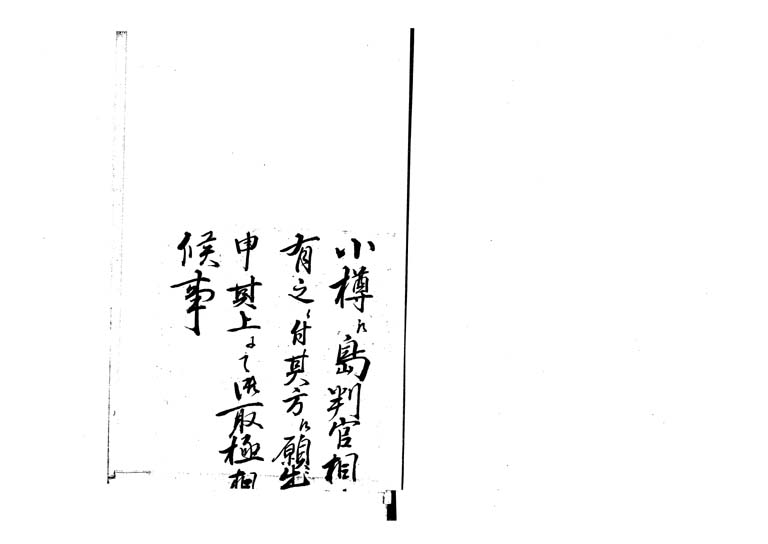 小樽江島判官相
有之ニ付其方江願出
申其上ニて御取極相
候事